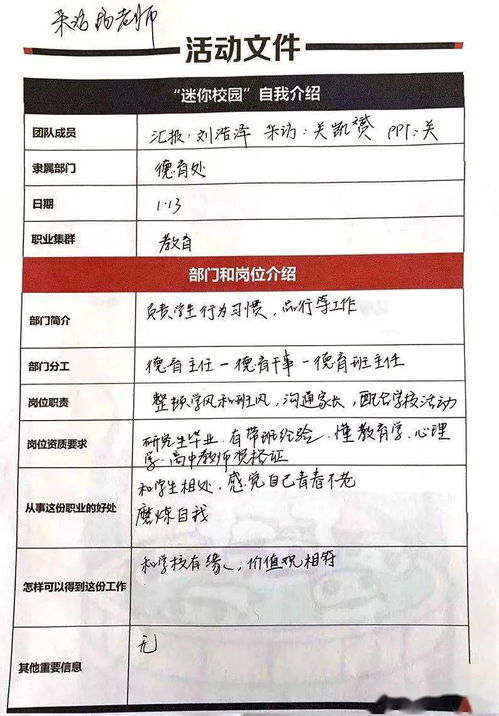 采访杨老师
活动文件
“迷你校园”自我介绍
团队成员 汇报：刘浩泽 采访：关凯赟 PPT：关
隶属部门 德育处
日期 1.13
职业集群 教育
部门和岗位介绍
部门简介 负责学生行为习惯，品行等工作
部门分工 德育主任-德育干事-德育班主任
岗位职责 整顿学风和班风，沟通家长，配合学校活动
岗位资质要求 研究生毕业、有带班经验、懂教育学、心理
学、高中教师资格证
从事这份职业的好处 和学生相处，感觉自己青春不老
磨炼自我
怎样可以得到这份工作 和学校有缘，价值观相符
其他重要信息 无